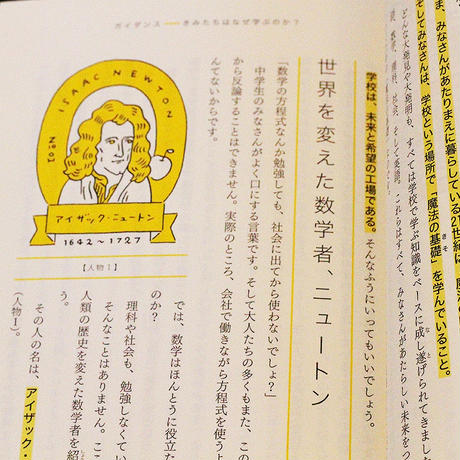 ガイダンス——きみたちはなぜ学ぶのか？
ま、みなさんがあたりまえに暮らしている21世紀は、魔法
そしてみなさんは、学校という場所で「魔法の基礎」を学んでいること。
どんな大発見や大発明も、すべては学校で学ぶ知識をベースに成し遂げられてきました
国語、数学、理科、社会、そして英語。これらはすべて、みなさんがあたらしい未来をつ
学校は、未来と希望の工場である。そんなふうにいってもいいでしょう。
世界を変えた数学者、ニュートン
「数学の方程式なんか勉強しても、社会に出てから使わないでしょ？」
中学生のみなさんがよく口にする言葉です。そして大人たちの多くもまた、この
から反論することはできません。実際のところ、会社で働きながら方程式を使うよ
んてないからです。
では、数学はほんとうに役立た
のか？
理科や社会も、勉強しなくてい
そんなことはありません。ここ
人類の歴史を変えた数学者を紹
う。
その人の名は、アイザック・
（人物1）。
ISAAC NEWTON
No.01
アイザック・ニュートン
1642〜1727
【人物1】